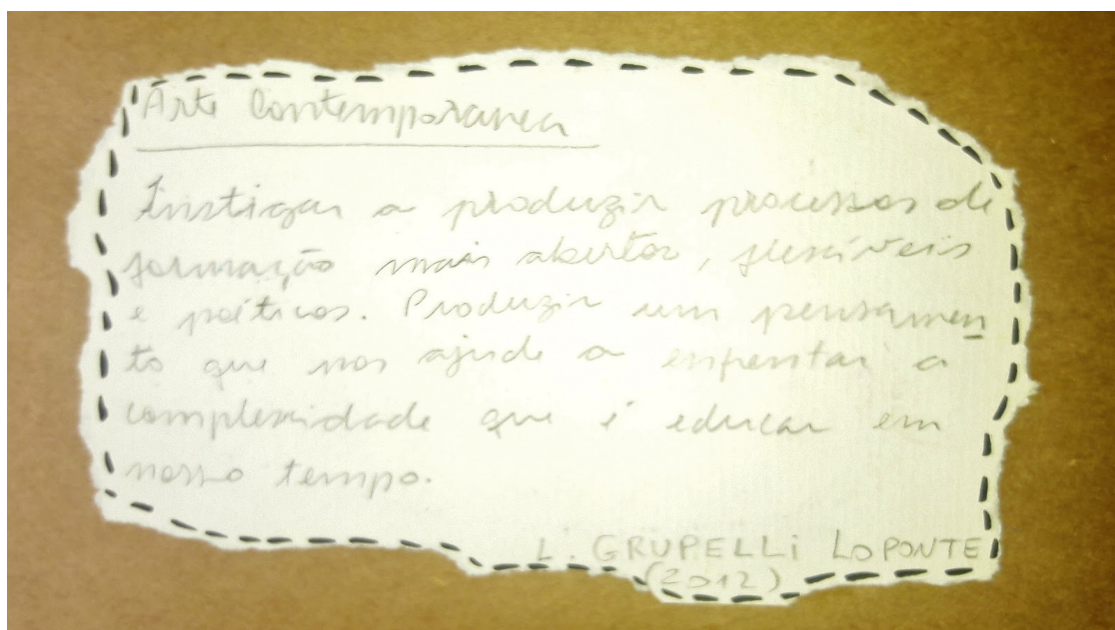 Arte Contemporanea
Instigar a produzir processos de
formação mais abertos, flexíveis
e poéticos. Produzir um pensamen
to que nos ajude a enfrentar a
complexidade que é educar em
nosso tempo.
L. GRUPELLi LOPONTE
(2012)